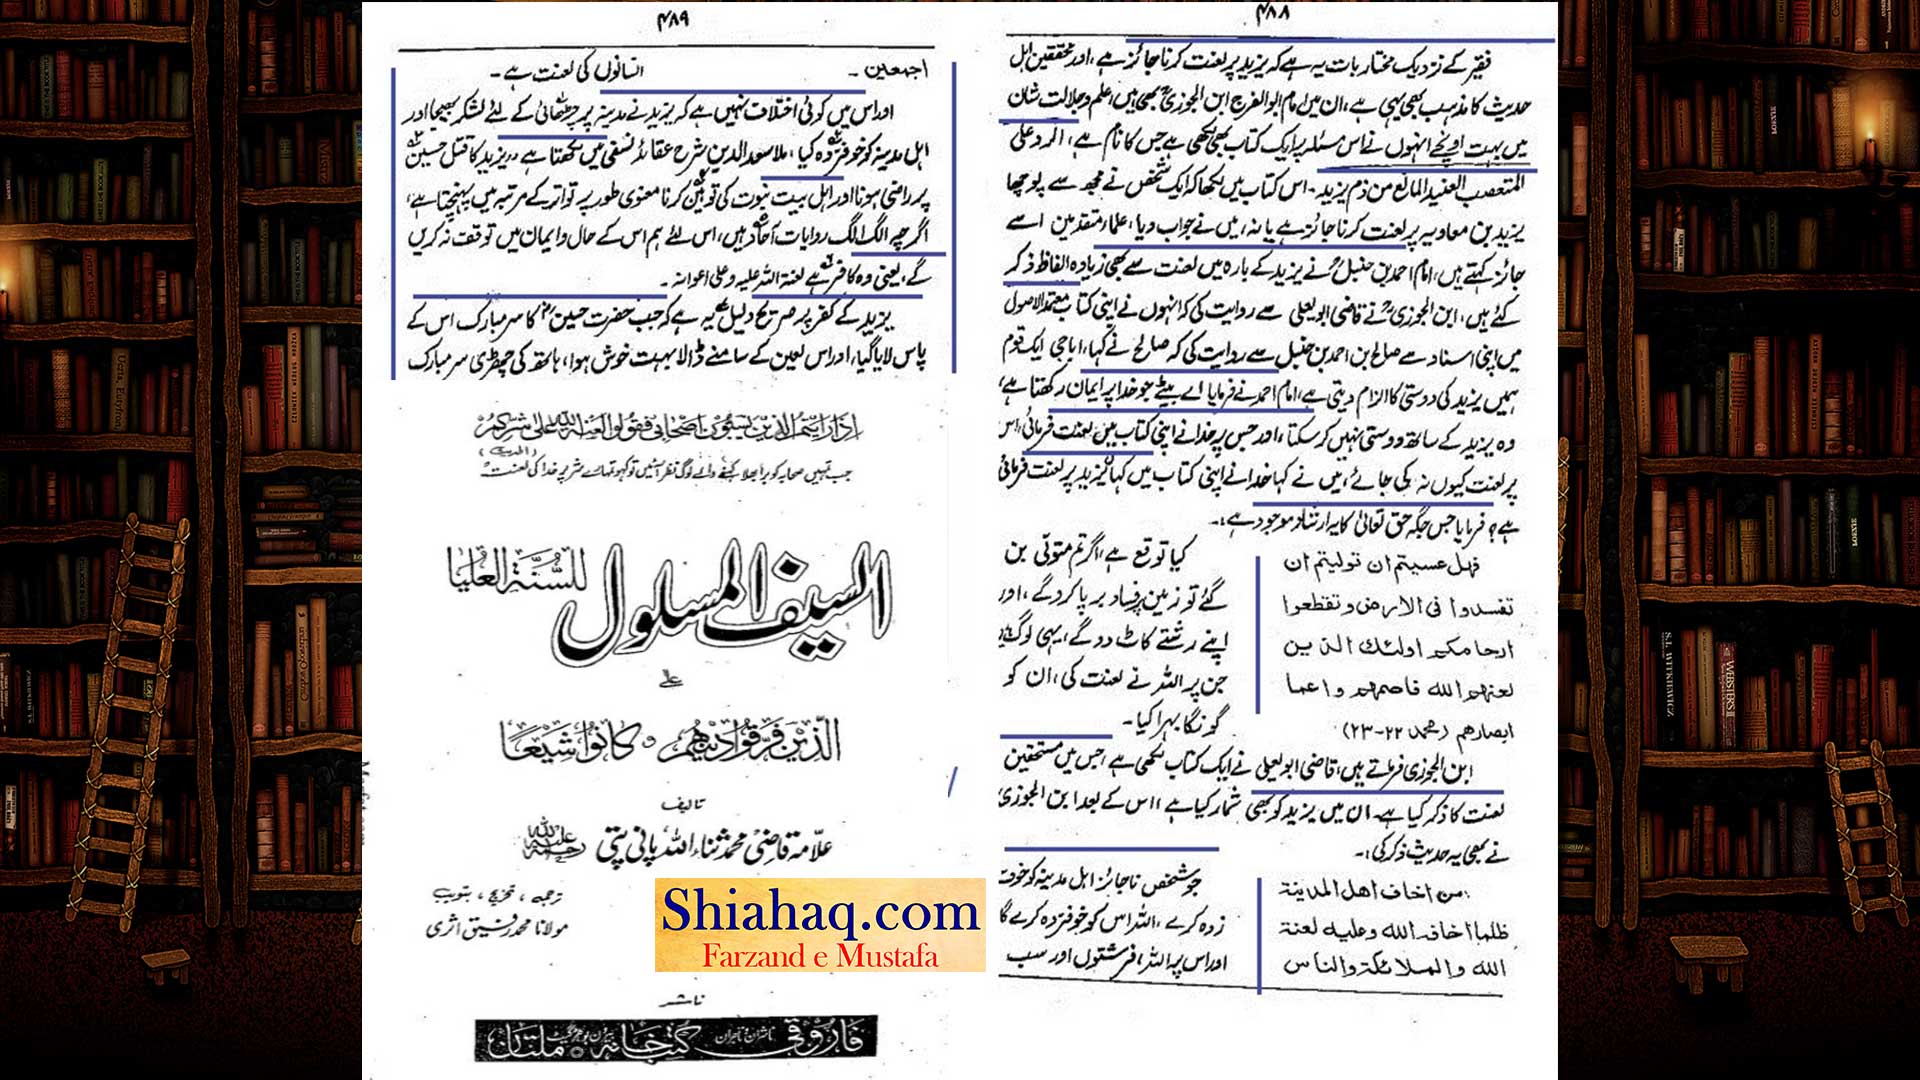 ۴۸۸
فقیر کے نزدیک مختار بات یہ ہے کہ یزید پر لعنت کرنا جائز ہے، اور محققین اہل
حدیث کا مذہب بھی یہی ہے، ان میں امام ابو الفرج ابن الجوزیؒ بھی ہیں، علم و جلالت شان
میں بہت اونچے انہوں نے اس مسئلہ پر ایک کتاب بھی لکھی ہے جس کا نام ہے، الرد علی
المتعصب العنید المانع من ذم یزید۔ اس کتاب میں لکھا کہ ایک شخص نے مجھ سے پوچھا
یزید بن معاویہ پر لعنت کرنا جائز ہے یا نہ، میں نے جواب دیا، علماء متقدمین اسے
جائز کہتے ہیں، امام احمد بن حنبلؒ نے یزید کے بارہ میں لعنت سے بھی زیادہ الفاظ ذکر
کئے ہیں، ابن الجوزیؒ نے قاضی ابو یعلی سے روایت کی کہ انہوں نے اپنی کتاب معتمد الاصول
میں اپنی اسناد سے صالح بن احمد بن حنبل سے روایت کی کہ صالح نے کہا، ابا جی ایک قوم
ہمیں یزید کی دوستی کا الزام دیتی ہے، امام احمد نے فرمایا اے بیٹے جو خدا پر ایمان رکھتا ہے،
وہ یزید کے ساتھ دوستی نہیں کر سکتا، اور جس پر خدا نے اپنی کتاب میں لعنت فرمائی، اس
پر لعنت کیوں نہ کی جائے، میں نے کہا خدا نے اپنی کتاب میں کہاں یزید پر لعنت فرمائی
ہے؟ فرمایا جس جگہ حق تعالیٰ کا یہ ارشاد موجود ہے:۔
فهل عسيتم ان توليتم ان
تفسدوا فى الارض وتقطعوا
ارحامكم اولئك الذين
لعنهم الله فاصمهم واعما
ابصارهم (محمد ۲۲-۲۳)
کیا توقع ہے، اگر تم متولی بن
گئے تو زمین پر فساد برپا کرو گے، اور
اپنے رشتے کاٹ دو گے، یہی لوگ ہیں
جن پر اللہ نے لعنت کی، ان کو
گونگا بہرا کیا۔
ابن الجوزی فرماتے ہیں، قاضی ابو یعلی نے ایک کتاب لکھی ہے، جس میں مستحقین
لعنت کا ذکر کیا ہے۔ ان میں یزید کو بھی شمار کیا ہے، اس کے بعد ابن الجوزی
نے بھی یہ حدیث ذکر کی:۔
من اخاف اهل المدينة
ظلما اخافه الله وعليه لعنة
الله والملائكة والناس
جو شخص ناجائز اہل مدینہ کو خوف
زدہ کرے، اللہ اس کو خوفزدہ کرے گا
اور اس پر اللہ، فرشتوں اور سب
۴۸۹
اجمعين ۔ انسانوں کی لعنت ہے۔
اور اس میں کوئی اختلاف نہیں ہے کہ یزید نے مدینہ پر چڑھائی کے لئے لشکر بھیجا اور
اہل مدینہ کو خوفزدہ کیا، ملا سعد الدین شرح عقائد نسفی میں لکھتا ہے، یزید کا قتل حسین
پر راضی ہونا اور اہل بیت نبوت کی توہین کرنا معنوی طور پر تواتر کے مرتبہ میں پہنچتا ہے،
اگرچہ الگ الگ روایات آحاد ہیں، اس لئے ہم اس کے حال و ایمان میں توقف نہ کریں
گے، یعنی وہ کافر ہے لعنة اللہ علیہ وعلی اعوانہ ۔
یزید کے کفر پر صریح دلیل یہ ہے کہ جب حضرت حسینؓ کا سر مبارک اس کے
پاس لایا گیا، اور اس لعین کے سامنے ڈالا بہت خوش ہوا، ہاتھ کی چھڑی سر مبارک
اذا رايتم الذين يسبون اصحابي فقولوا لعنة الله على شركم
(الحديث)
جب تمہیں صحابہ کو برا بھلا کہنے والے لوگ نظر آئیں تو کہو تمہارے شر پر خدا کی لعنت
السيف المسلول للسنة العليا
على
الذين فرقوا دينهم وكانوا شيعا
تالیف
علامہ قاضی محمد ثناء اللہ پانی پتی رحمۃ اللہ علیہ
ترجمہ ، تخریج ، تبویب
مولانا محمد رفیق اثری
Shiahaq.com
Farzand e Mustafa
ناشر
فاروقی کتب خانہ ناشران و تاجران بیرون بوہڑ گیٹ ملتان